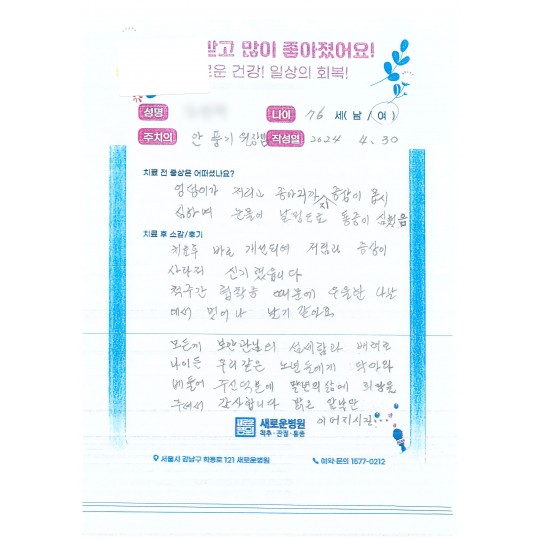 받고 많이 좋아졌어요!
로운 건강! 일상의 회복!
성명
나이 76 세( 남 / 여 )
주치의 안풍기 원장님 작성일 2024 4. 30
치료 전 증상은 어떠셨나요?
엉덩이가 저리고 종아리까지 증상이 몹시
심하며 눈물이 날정도로 통증이 심했음
치료 후 소감/후기
치료후 바로 개선되어 저림과 증상이
사라져 신기했습니다
척추관 협착증 때문에 우울한 나날
에서 벗어나 날기 같아요
모든게 보안관님의 섬세함과 배려로
나이든 우리같은 노년들에게
베풀어 주신덕분에 말년의 삶에 희망을
주셔서 감사합니다 밝은 앞날만
이어지시길...
새로운병원
척추·관절·통증
서울시 강남구 학동로 121 새로운병원
예약·문의 1577-0212